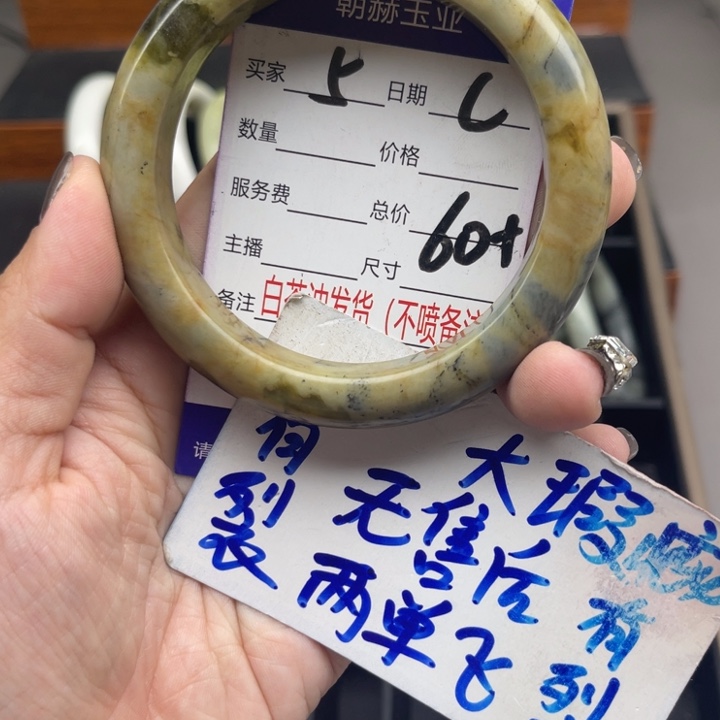 朝赫玉业
买家 5 日期 6
数量 价格
服务费 总价 60+
主播 尺寸
备注 白茶冲发货（不喷备注
请
有裂
大瑕疵
无售后
有裂
两单飞